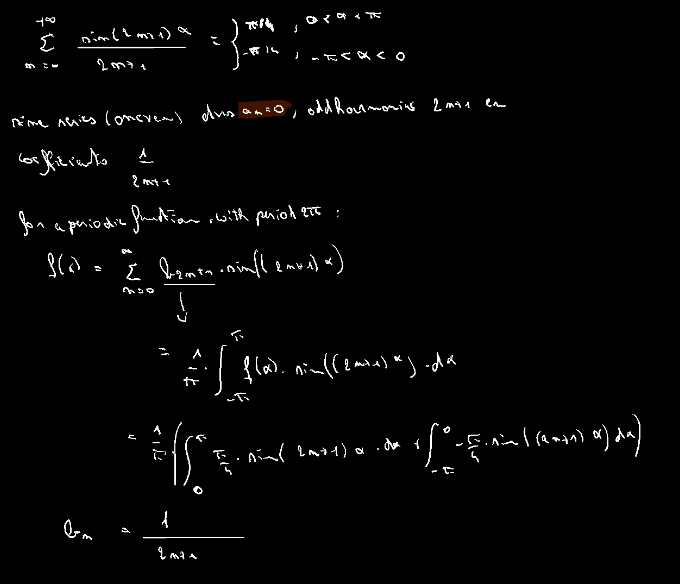 +∞ ∑ n=0 sin(2n+1)α / 2n+1 = { π/4 , 0<α<π
-π/4 , -π<α<0
sine series (oneven) dus aₙ=0, odd harmonics 2n+1 en
coefficients 1/2n+1
for a periodic function, with period 2π :
f(α) = ∞ ∑ n=0 b₂ₙ₊₁ · sin((2n+1)α)
↓
= 1/π · ∫_{-π}^{π} f(α) · sin((2n+1)α) · dα
= 1/π ( ∫_0^π π/4 · sin(2n+1)α · dα + ∫_{-π}^0 -π/4 · sin((2n+1)α) dα )
bₙ = 1 / 2n+1